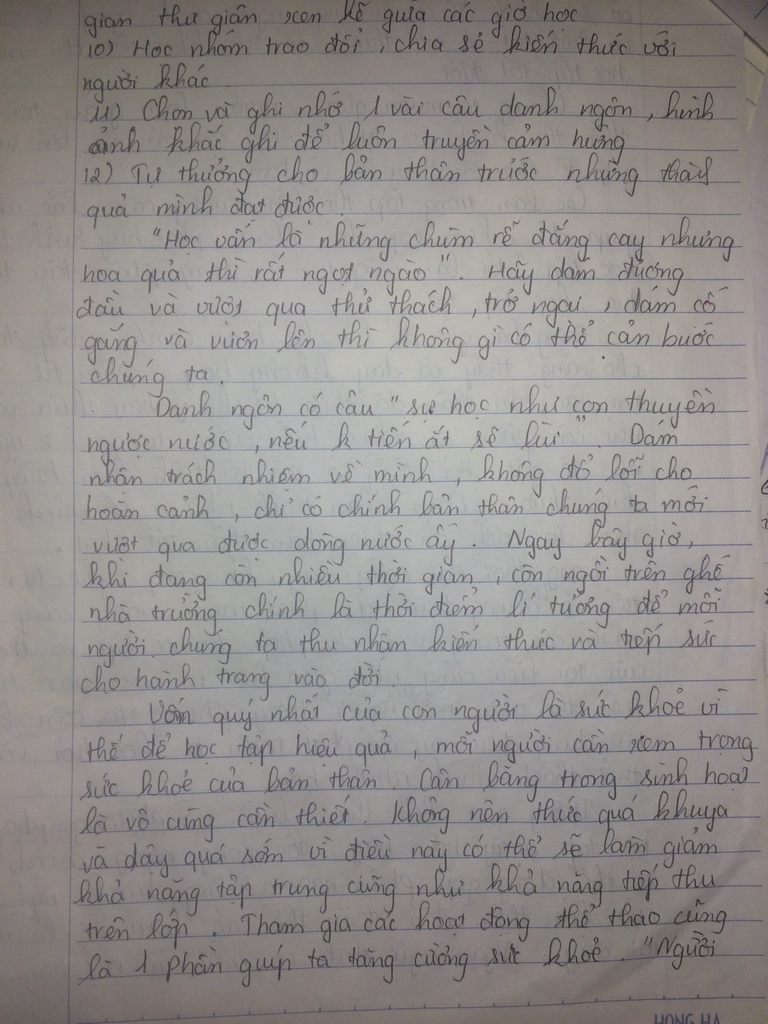 gian thư giãn xen kẽ giữa các giờ học
10) Học nhóm trao đổi, chia sẻ kiến thức với
người khác
11) Chọn và ghi nhớ 1 vài câu danh ngôn, hình
ảnh khắc ghi để luôn truyền cảm hứng
12) Tự thưởng cho bản thân trước những thành
quả mình đạt được.
"Học vấn là những chùm rễ đắng cay nhưng
hoa quả thì rất ngọt ngào". Hãy dám đương
đầu và vượt qua thử thách, trở ngại, dám cố
gắng và vươn lên thì không gì có thể cản bước
chúng ta.
Danh ngôn có câu "sự học như con thuyền
ngược nước, nếu k tiến ắt sẽ lùi". Dám
nhận trách nhiệm về mình, không đổ lỗi cho
hoàn cảnh, chỉ có chính bản thân chúng ta mới
vượt qua được dòng nước ấy. Ngay bây giờ,
khi đang còn nhiều thời gian, còn ngồi trên ghế
nhà trường chính là thời điểm lí tưởng để mỗi
người chúng ta thu nhận kiến thức và tiếp sức
cho hành trang vào đời
Vốn quý nhất của con người là sức khoẻ vì
thế để học tập hiệu quả, mỗi người cần xem trọng
sức khoẻ của bản thân. Cân bằng trong sinh hoạt
là vô cùng cần thiết. Không nên thức quá khuya
và dậy quá sớm vì điều này có thể sẽ làm giảm
khả năng tập trung cũng như khả năng tiếp thu
trên lớp. Tham gia các hoạt động thể thao cũng
là 1 phần giúp ta tăng cường sức khoẻ. "Người
HONG HA